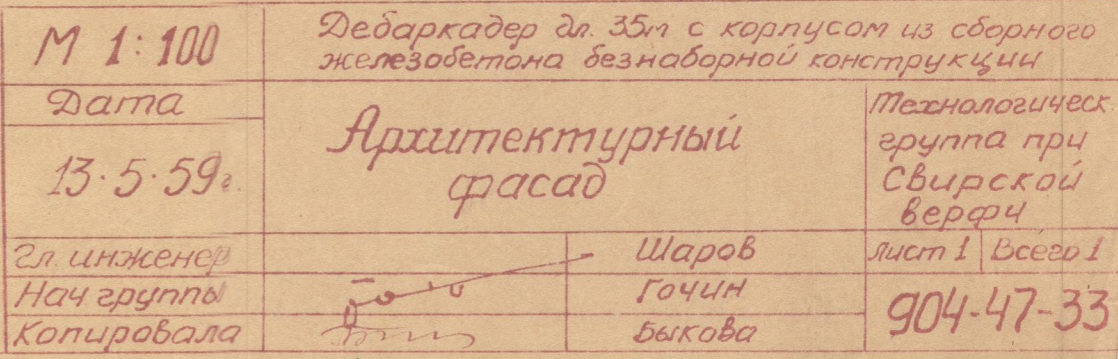 М 1:100
Дебаркадер дл. 35м с корпусом из сборного
железобетона безнаборной конструкции
Дата
13·5·59г.
Архитектурный
фасад
Технологическ.
группа при
Свирской
верфи
Гл. инженер
Шаров
Лист 1 Всего 1
Нач группы
Гочин
904-47-33
Копировала
Быкова